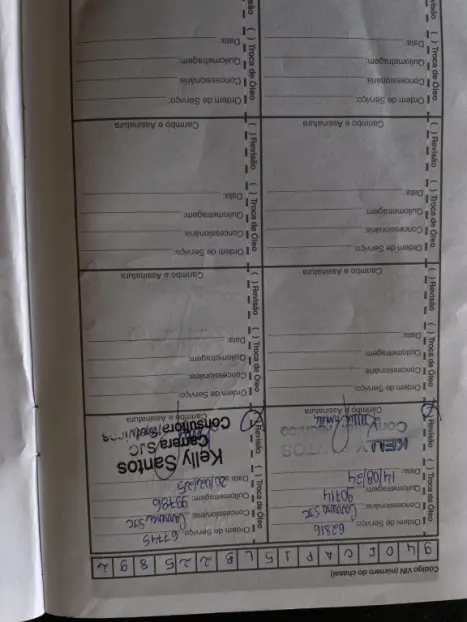 Código VIN (número do chassi)
9 4 D F C A P 1 5 L B 2 2 5 8 9 2
( ) Revisão ( ) Troca de Óleo
Ordem de Serviço: 62316
Concessionária: Carrera SJC
Quilometragem: 90114
Data: 14/08/24
KELLY SANTOS
Carimbo e Assinatura
( ) Revisão ( ) Troca de Óleo
Ordem de Serviço: 67745
Concessionária: Carrera SJC
Quilometragem: 99786
Data: 20/02/25
Kelly Santos
Carrera SJC
Consultora
Carimbo e Assinatura
( ) Revisão ( ) Troca de Óleo
Ordem de Serviço:
Concessionária:
Quilometragem:
Data:
Carimbo e Assinatura
( ) Revisão ( ) Troca de Óleo
Ordem de Serviço:
Concessionária:
Quilometragem:
Data:
Carimbo e Assinatura
( ) Revisão ( ) Troca de Óleo
Ordem de Serviço:
Concessionária:
Quilometragem:
Data:
Carimbo e Assinatura
( ) Revisão ( ) Troca de Óleo
Ordem de Serviço:
Concessionária:
Quilometragem:
Data:
Carimbo e Assinatura
( ) Revisão ( ) Troca de Óleo
Ordem de Serviço:
Concessionária:
Quilometragem:
Data:
( ) Revisão ( ) Troca de Óleo
Ordem de Serviço:
Concessionária:
Quilometragem:
Data: